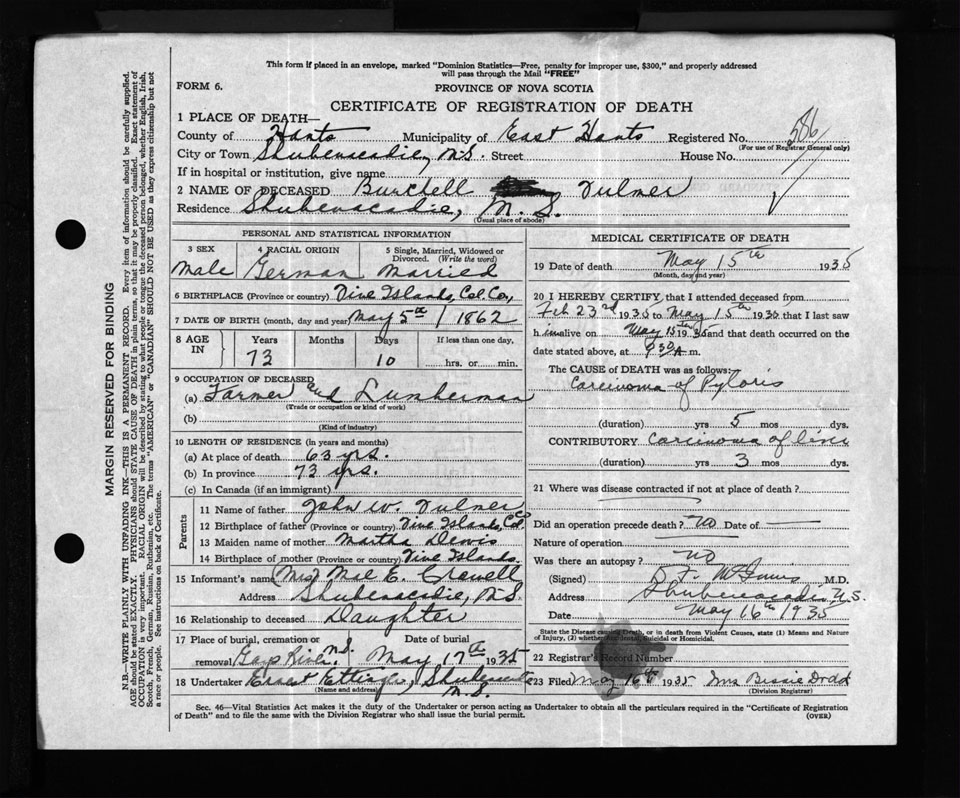 This form if placed in an envelope, marked "Dominion Statistics—Free, penalty for improper use, $300," and properly addressed
will pass through the Mail "FREE"
FORM 6.
PROVINCE OF NOVA SCOTIA
CERTIFICATE OF REGISTRATION OF DEATH
1 PLACE OF DEATH—
County of Hants Municipality of East Hants Registered No. 586
(For use of Registrar General only)
City or Town Shubenacadie, N.S. Street House No.
If in hospital or institution, give name
2 NAME OF DECEASED Burchell Fulmer
Residence Shubenacadie, N.S.
(Usual place of abode)
PERSONAL AND STATISTICAL INFORMATION
3 SEX 4 RACIAL ORIGIN 5 Single, Married, Widowed or Divorced. (Write the word)
Male German Married
6 BIRTHPLACE (Province or country) Five Islands, Col. Co.,
7 DATE OF BIRTH (month, day and year) May 5th / 1862
8 AGE IN Years Months Days If less than one day,
73 10 hrs. or min.
9 OCCUPATION OF DECEASED
(a) Farmer and Lumberman
(Trade or occupation or kind of work)
(b)
(Kind of industry)
10 LENGTH OF RESIDENCE (in years and months)
(a) At place of death 63 yrs.
(b) In province 73 yrs.
(c) In Canada (if an immigrant)
Parents
11 Name of father John W. Fulmer
12 Birthplace of father (Province or country) Five Islands, Col. Co
13 Maiden name of mother Martha Lewis
14 Birthplace of mother (Province or country) Five Islands.
15 Informant's name (Mrs) E.
Address Shubenacadie, N.S.
16 Relationship to deceased Daughter
17 Place of burial, cremation or removal Gays River N.S. Date of burial May 17th 1935
18 Undertaker Ernest Ettinger, Shubenacadie
(Name and address) N.S.
MEDICAL CERTIFICATE OF DEATH
19 Date of death May 15th 1935
(Month, day and year)
20 I HEREBY CERTIFY, that I attended deceased from
Feb 23rd 1935 to May 15th 1935 that I last saw
him alive on May 15th 1935 and that death occurred on the
date stated above, at 9 30 A m.
The CAUSE of DEATH was as follows:
Carcinoma of Pyloris
(duration) yrs 5 mos dys.
CONTRIBUTORY Carcinoma of liver
(duration) yrs 3 mos dys.
21 Where was disease contracted if not at place of death?
Did an operation precede death? no Date of —
Nature of operation
Was there an autopsy? no
(Signed) D. F. McInnis M.D.
Address Shubenacadie, N.S.
Date May 16th 1935
State the Disease causing Death, or in death from Violent Causes, state (1) Means and
Nature of Injury, (2) whether Accidental, Suicidal or Homicidal.
22 Registrar's Record Number
23 Filed May 16th 1935 Mrs Bessie Dodd
(Division Registrar)
Sec. 46—Vital Statistics Act makes it the duty of the Undertaker or person acting as Undertaker to obtain all the particulars required in the "Certificate of Registration
of Death" and to file the same with the Division Registrar who shall issue the burial permit.
(OVER)
MARGIN RESERVED FOR BINDING
N.B.—WRITE PLAINLY WITH UNFADING INK—THIS IS A PERMANENT RECORD. Every item of information should be carefully supplied.
AGE should be stated EXACTLY. PHYSICIANS should STATE CAUSE OF DEATH in plain terms, so that it may be properly classified. Exact statement of
OCCUPATION is very important. RACIAL ORIGIN will be described by stating to what people or tongue the deceased person belonged, whether English, Irish,
Scotch, French, German, Russian, Ruthenian, etc. The terms "AMERICAN" or "CANADIAN" SHOULD NOT BE USED as they express citizenship but not
a race or people. See instructions on back of Certificate.